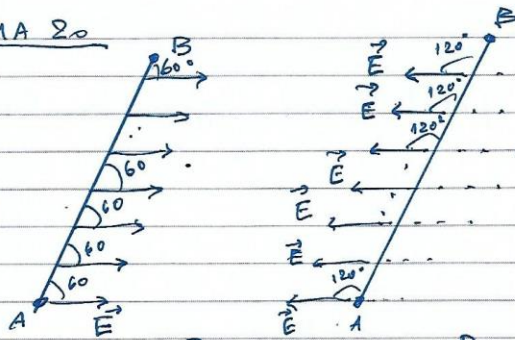 MA 20
B
60°
60
60
60
60
A
E
B
120°
E
120°
E
120°
E
E
E
120°
E
A